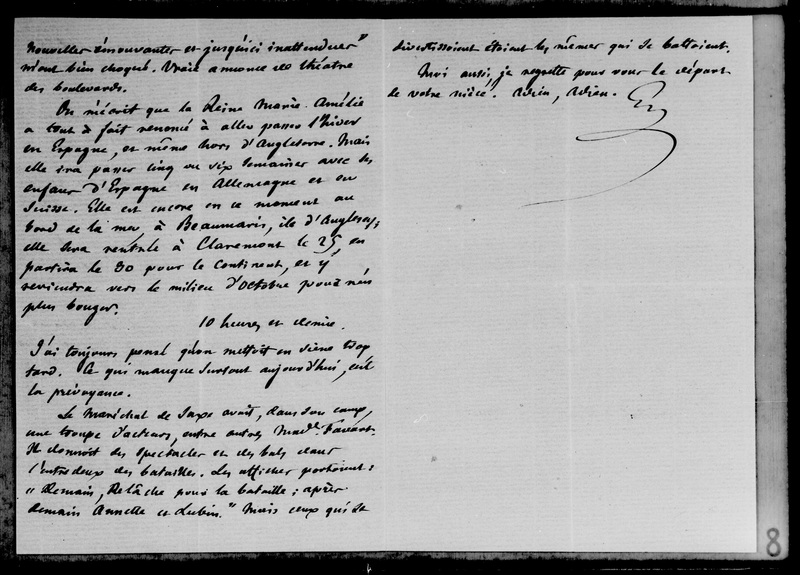 nouvelles émouvantes et jusqu'ici inattendues"
m'ont bien choqué. Vraie annonce de théâtre
des boulevards.
On m'écrit que la Reine Marie-Amélie
a tout à fait renoncé à aller passer l'hiver
en Espagne, et même hors d'Angleterre. Mais
elle ira passer cinq ou six semaines avec ses
enfans d'Espagne en Allemagne et en
Suisse. Elle est encore en ce moment au
bord de la mer, à Beaumaris, île d'Anglesey;
elle sera rentrée à Claremont le 25, en
partira le 30 pour le continent, et y
reviendra vers le milieu d'octobre pour n'en
plus bouger.
10 heures et demie.
J'ai toujours pensé qu'on mettoit en scène trop
tard. Ce qui manque surtout aujourd'hui, c'est
la prévoyance.
Le Maréchal de Saxe avoit, dans son camp,
une troupe d'acteurs, entre autres Made. Favart.
Il donnoit des spectacles et des bals dans
l'entre deux des batailles. Les affiches portoient:
"Demain, Relâche pour la bataille; après
demain Annette et Lubin." Mais ceux qui se
divertissoient étoient les mêmes qui se battoient.
Moi aussi, je regrette pour vous le départ
de votre nièce. Adieu, Adieu.
8